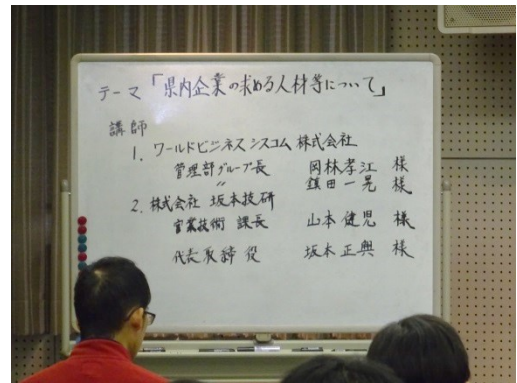 テーマ「県内企業の求める人材等について」
講師
1. ワールドビジネスシスコム 株式会社
管理部グループ長 岡林孝江 様
〃 鎮田一晃 様
2. 株式会社 坂本技研
営業技術 課長 山本健児 様
代表取締役 坂本正興 様